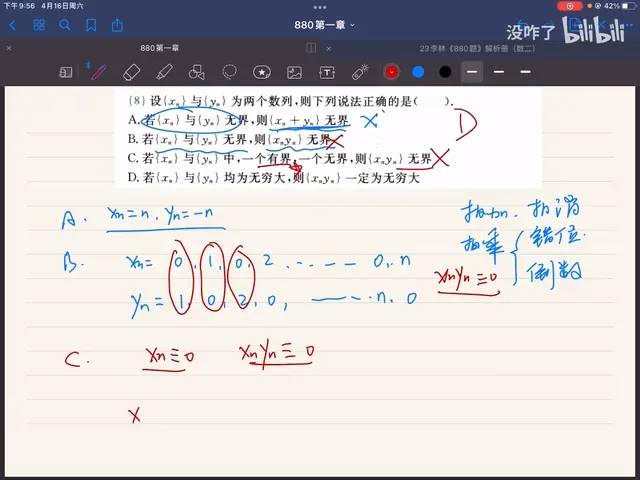 下午9:56 4月16日周六
42%
880第一章
没咋了 bilibili
880第一章
23李林《880题》解析册(数二)
(8) 设{xₙ}与{yₙ}为两个数列,则下列说法正确的是( ).
D
A. 若{xₙ}与{yₙ}无界,则{xₙ+yₙ}无界 ×
B. 若{xₙ}与{yₙ}无界,则{xₙyₙ}无界 ×
C. 若{xₙ}与{yₙ}中,一个有界,一个无界,则{xₙyₙ}无界 ×
D. 若{xₙ}与{yₙ}均为无穷大,则{xₙyₙ}一定为无穷大
A. xₙ=n, yₙ=-n
B. xₙ= 0, 1, 0, 2 ...... 0, n
yₙ= 1, 0, 2, 0, ...... n, 0
相加, 相消
相乘 { 错位
倒数
xₙyₙ≡0
C. xₙ≡0 xₙyₙ≡0